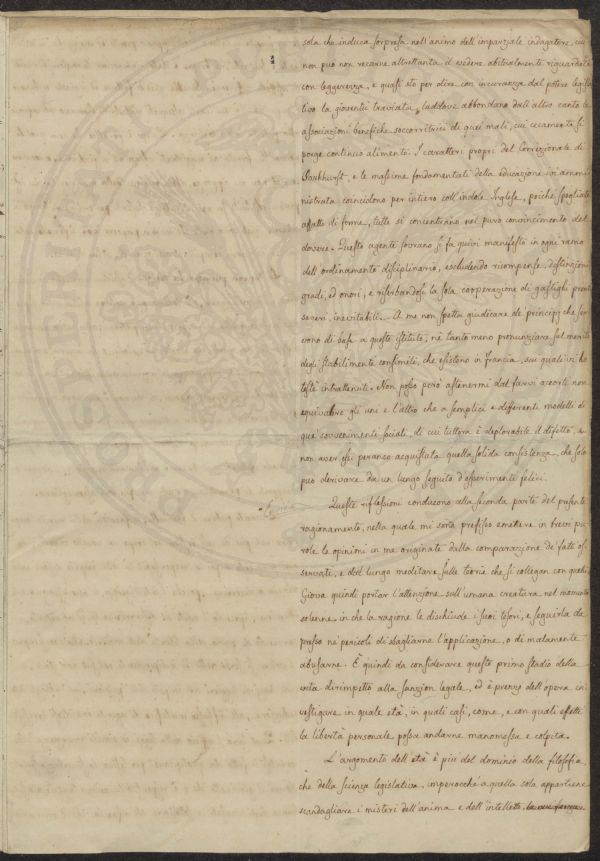 sola che induca sorpresa nell'animo dell'imparziale indagatore, cui
non può non recarne altrettanta il vedere abitualmente riguardata
con leggerezza, e quasi sto per dire con incuranza dal potere legisla
tivo la gioventù traviata, laddove abbondano dall'altro canto le
associazioni benefiche soccorritrici di quei mali, cui cecamente si
porge continuo alimento. I caratteri propri del Correzionale di
Parkhurst, e le massime fondamentali della educazione ivi ammi
nistrata coincidono per intiero coll'indole Inglese, poichè spogliate
affatto di forme, tutte si concentrano nel puro convincimento del
dovere. Questo agente sovrano si fa quivi manifesto in ogni ramo
dell'ordinamento disciplinario, escludendo ricompense, distinzioni
gradi, ed onori, e riserbandosi la sola cooperazione di gastighi pronti
severi, inevitabili. A me non spetta giudicare de' principj che ser
vono di base a questo istituto, nè tanto meno pronunziare sul merito
degli stabilimenti consimili, che esistono in Francia, sui quali vi ho
testè intrattenuti. Non posso però astenermi dal farvi accorti non
equivalere gli uni e l'altro che a semplici e differenti modelli di
que' sovvenimenti sociali, di cui tuttora è deplorabile il difetto, e
non aver essi peranco acquistata quella solida consistenza, che solo
può derivare da un lungo seguito d'esperimenti felici.
Queste riflessioni conducono alla seconda parte del presente
ragionamento, nella quale mi sono prefisso emettere in brevi pa
role le opinioni in me originate dalla comparazione de' fatti os
servati, e dal lungo meditare sulle teorie che si collegan con quelli.
Giova quindi portar l'attenzione sull'umana creatura nel momento
solenne in che la ragione le dischiude i suoi tesori, e seguirla da
presso ne' pericoli di sbagliarne l'applicazione, o di malamente
abusarne. È quindi da considerare questo primo stadio della
vita dirimpetto alla sanzion legale, ed è prezzo dell'opera in
vestigare in quale età, in quali casi, come, e con quali effetti
la libertà personale possa andarne manomessa e colpita.
L'argomento dell'età è più del dominio della filosofia,
che della scienza legislativa, imperocchè a quella sola appartiene
scandagliare i misteri dell'anima e dell'intelletto